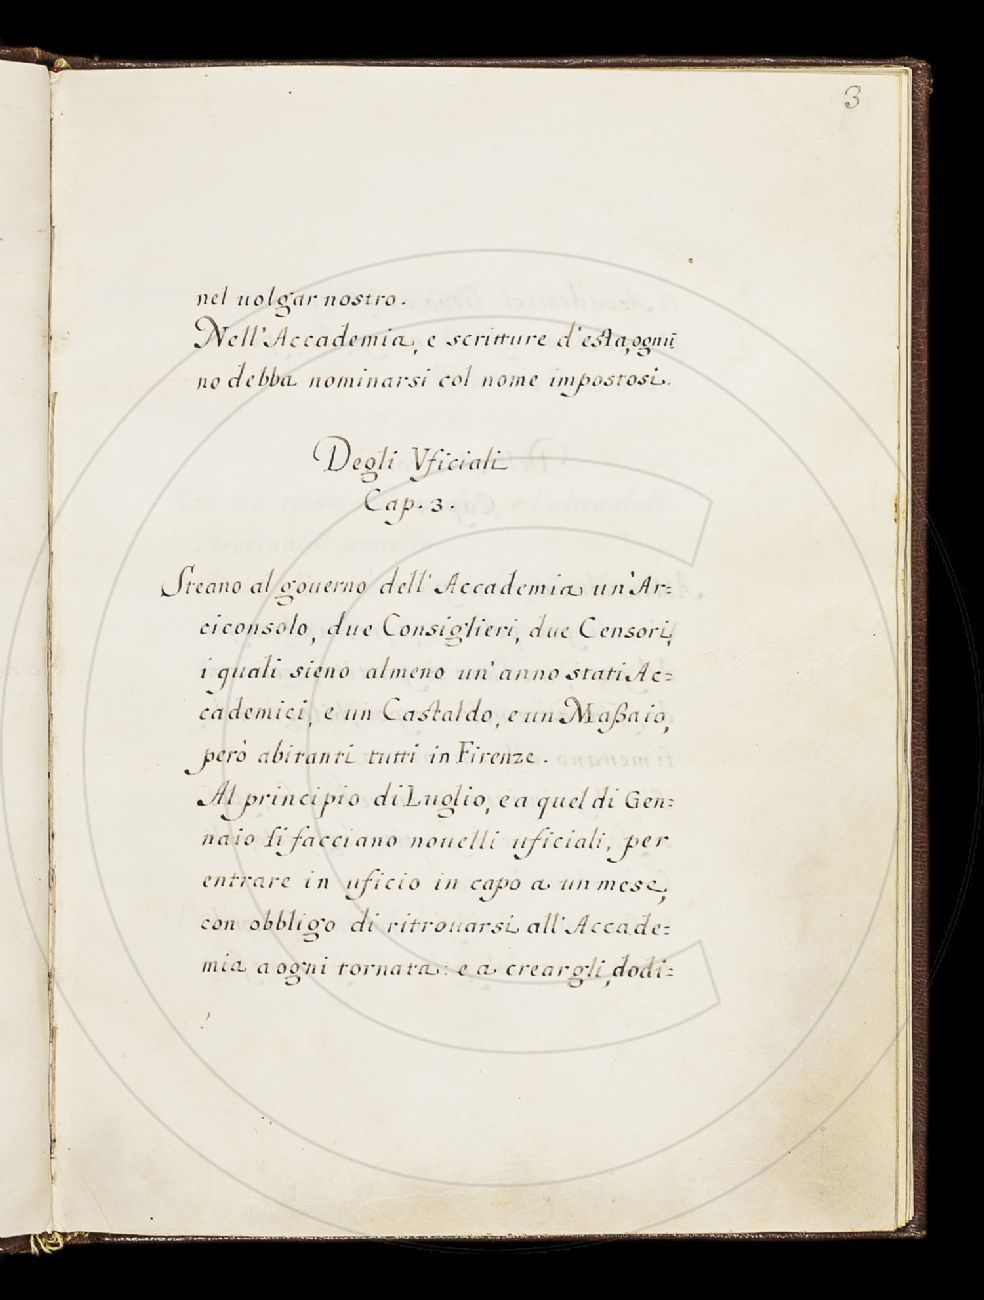 3
nel uolgar nostro.
Nell'Accademia, e scritture d'esta, ognũ
no debba nominarsi col nome impostosi.
Degli Vficiali
Cap. 3.
Steano al gouerno dell'Accademia un'Ar=
ciconsolo, due Consiglieri, due Censori,
i quali sieno almeno un'anno stati Ac=
cademici, e un Castaldo, e un Maßaio,
però abitanti tutti in Firenze.
Al principio di Luglio, e a quel di Gen=
naio si facciano nouelli uficiali, per
entrare in uficio in capo a un mese,
con obbligo di ritrouarsi all'Accade=
mia a ogni tornata: e a creargli, dodi=